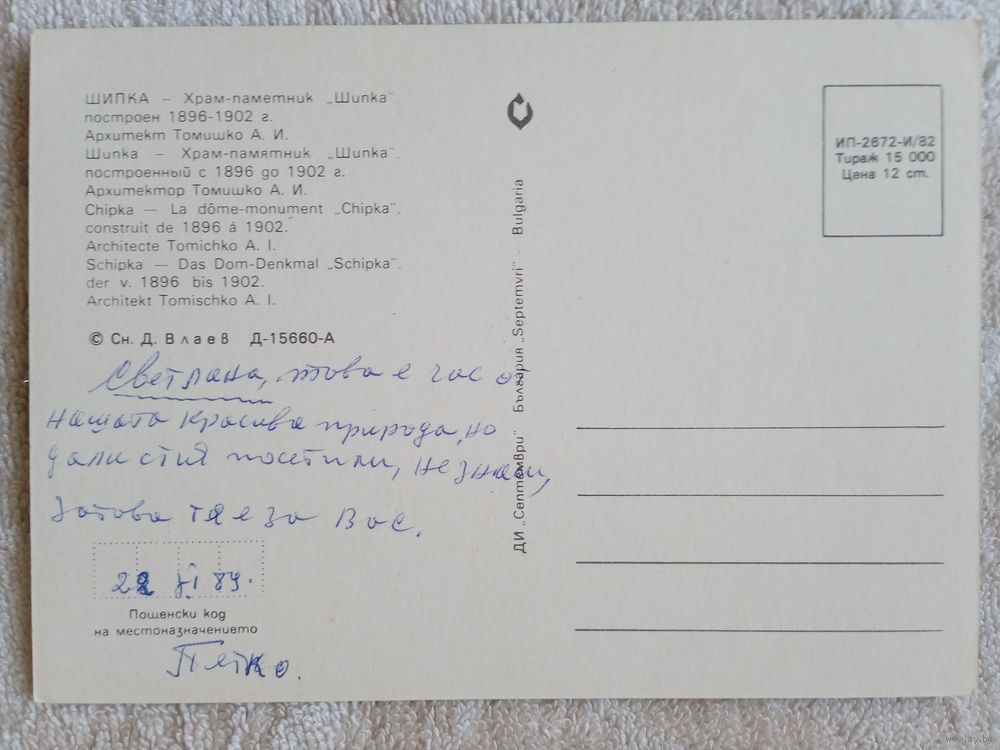 ШИПКА – Храм-паметник „Шипка".
построен 1896-1902 г.
Архитект Томишко А. И.
Шипка – Храм-памятник „Шипка".
построенный с 1896 до 1902 г.
Архитектор Томишко А. И.
Chipka – La dôme-monument „Chipka".
construit de 1896 à 1902.
Architecte Tomichko A. I.
Schipka – Das Dom-Denkmal „Schipka".
der v. 1896 bis 1902.
Architekt Tomischko A. I.
© Сн. Д. Влаев Д-15660-А
Светлана, това е час от
нашата красива природа, но
дали сте я посетили, не знам,
затова тя е за Вас.
22 VI 89.
Пощенски код
на местоназначението
Петко.
ДИ „Септември" България „Septemvri" – Bulgaria
ИП-2672-И/82
Тираж 15 000
Цена 12 ст.
www.ay.by